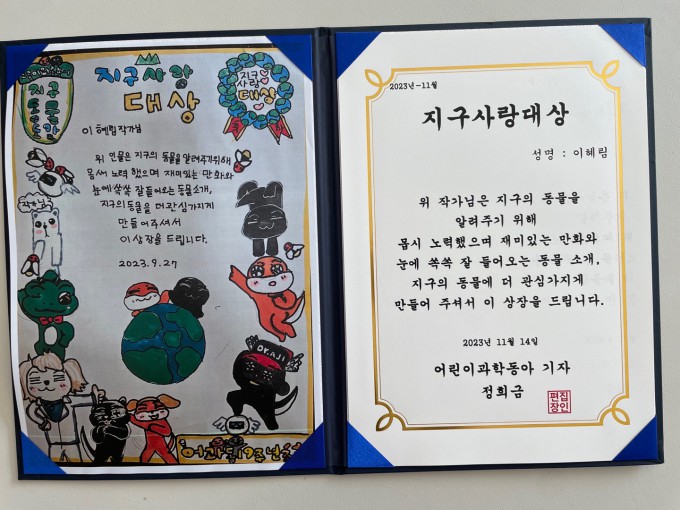 지구
사랑
대상
지구사랑
대상
지구
사랑
대상
이혜림작가님
위 인물은 지구의 동물을 알려주기위해
몹시 노력 했으며 재미있는 만화와
눈에 쏙쏙 잘 들어오는 동물소개,
지구의 동물을 더 관심가지게
만들어주셔서
이 상장을 드립니다.
2023.9.27
DR.AJI
어과동19주년
2023년-11월
지구사랑대상
성명 : 이혜림
위 작가님은 지구의 동물을
알려주기 위해
몹시 노력했으며 재미있는 만화와
눈에 쏙쏙 잘 들어오는 동물 소개,
지구의 동물에 더 관심가지게
만들어 주셔서 이 상장을 드립니다.
2023년 11월 14일
어린이과학동아 기자
정희금
편집
장인